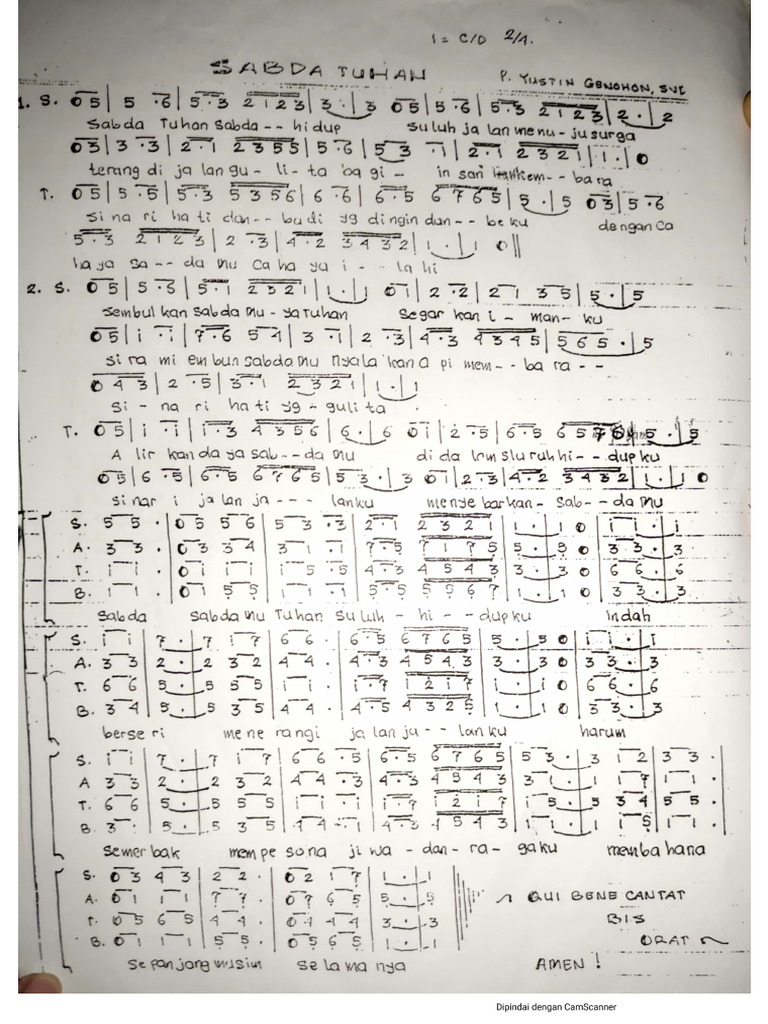 1 = C/D 2/4.
SABDA TUHAN
P. YUSTIN GENOHON, SVD
1. S. 05 | 5 .6 | 5.3 2123 | 3 . | 3 05 | 5.6 | 5.3 2123 | 2 . | 2
Sabda Tuhan Sabda - - hidup suluh jalan menu - ju surga
03 | 3 .3 | 2.1 2355 | 5.6 | 53 .1 | 2.1 2321 | 1 . | 0
terang di jalan gu - li - ta bagi - insan - - bara
T. 05 | 5 .5 | 5.3 5356 | 6 .6 | 6.5 6765 | 5 . | 5 03 | 5.6
sinari hati dan - - budi yg dingin dan - - beku dengan Ca
5.3 2123 | 2 .3 | 4.2 3432 | 1 . | 1 0 ||
haya sa - - damu Cahaya i - - lahi
2. S. 05 | 5.6 | 5.1 2321 | 1 . | 1 01 | 2 .2 | 21 35 | 5 . | 5
sembulkan sabda mu - ya Tuhan Segarkan i - man - ku
05 | i .i | 7.6 54 | 3 .1 | 2 .3 | 4.3 4345 | 565 . | 5
sirami embun sabdamu Nyalakan api mem - - bara - -
043 | 2 .5 | 3.1 2321 | 1 . | 1
Si - nari hati yg - gulita
T. 05 | i .i | i.3 4356 | 6 . | 6 0i | 2 .5 | 6.5 | 5 . | 5
Alirkan daya sab - - damu didalam sluruh hi - - dupku
05 | 6 .5 | 6.5 6765 | 53 . | 3 01 | 2.3 | 4.2 3432 | 1 . | 1 0
sinari jalan ja - - - lanku menyebarkan - sab - - damu
S. 55 . | 05 56 | 53 .3 | 2.1 2321 | 1 . | 1 0 | ii . | i
A. 33 . | 03 34 | 31 .1 | 7.5 7175 | 5 . | 5 0 | 33 . | 3
T. ii . | 0i ii | i5 .5 | 4.3 4543 | 3 . | 3 0 | 66 . | 6
B. 11 . | 01 55 | 11 .1 | 5.5 5567 | 1 . | 1 0 | 33 . | 3
Sabda sabdamu Tuhan Suluh - hi - - dupku Indah
S. ii | 7 . | 7 i7 | 66 . | 6.5 6765 | 5 . | 5 0 | ii . | i
A. 33 | 2 . | 2 32 | 44 . | 4.3 4543 | 3 . | 3 0 | 33 . | 3
T. 66 | 5 . | 5 55 | ii . | i.7 i2i7 | i . | i 0 | 66 . | 6
B. 34 | 5 . | 5 35 | 44 . | 4.5 4325 | 1 . | 1 0 | 33 . | 3
berseri menerangi jalan ja - - lanku harum
S. ii | 7 . | 7 i7 | 66 .5 | 6.5 6765 | 53 . | 3 12 | 33 .
A 33 | 2 . | 2 32 | 44 .3 | 4.3 4543 | 31 . | 1 17 | 11 .
T. 66 | 5 . | 5 55 | ii .i | i.7 i2i7 | i5 . | 5 34 | 55 .
B. 3 . | 5 . | 5 35 | 44 .1 | 4.3 4543 | 11 . | 1 15 | 11 .
semerbak mempesona jiwa - dan - ra - gaku membahana
S. 03 43 | 22 . | 02 17 | 1 . | 1
A. 01 11 | 77 . | 07 65 | 5 . | 5
T. 05 65 | 44 . | 04 44 | 3 . | 3
B. 01 11 | 55 . | 05 65 | 1 . | 1
sepanjang musim selamanya
~ QUI BENE CANTAT
BIS
ORAT ~
AMEN !
Dipindai dengan CamScanner